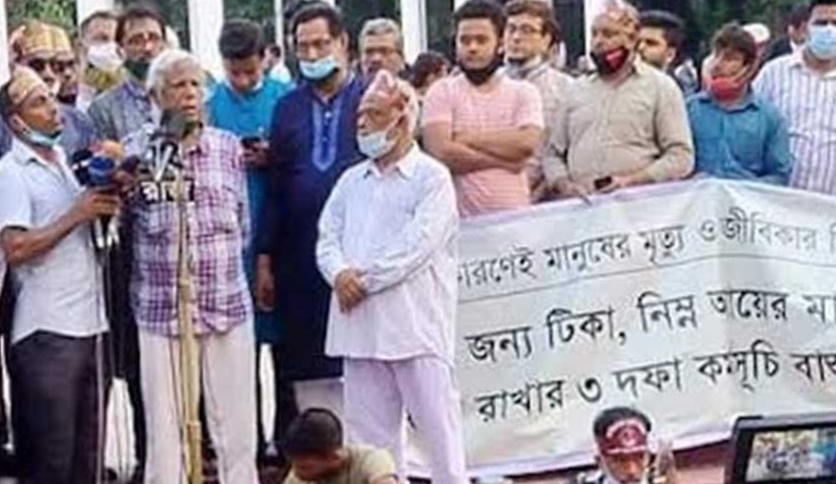 ারণেই মানুষের মৃত্যু ও জীবিকার
জন্য টিকা, নিম্ন আয়ের মা
রাখার ৩ দফা কর্মসূচি বাস